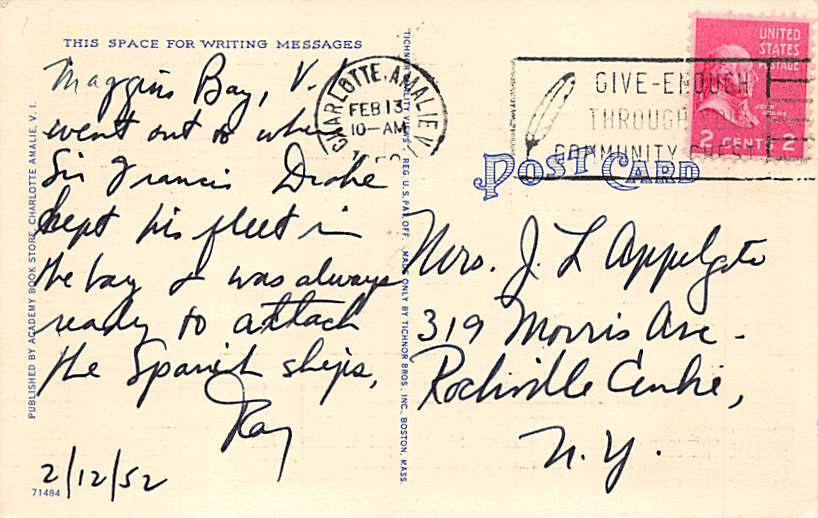 THIS SPACE FOR WRITING MESSAGES
Maggins Bay, V. I
went out to where
Sir Francis Drake
kept his fleet in
the bay & was always
ready to attack
the Spanish ships,
Ray
2/12/52
71484
PUBLISHED BY ACADEMY BOOK STORE, CHARLOTTE AMALIE, V. I.
TICHNOR QUALITY VIEWS REG. U. S. PAT. OFF. MADE ONLY BY TICHNOR BROS. INC. BOSTON, MASS.
CHARLOTTE AMALIE, V.
FEB 13
10-AM
GIVE-ENOUGH
THROUGH YOUR
COMMUNITY CHEST
UNITED
STATES
POSTAGE
JOHN
ADAMS
2 CENTS 2
POST CARD
Mrs. J. L Applegate
319 Morris Ave.
Rockville Centre,
N. Y.